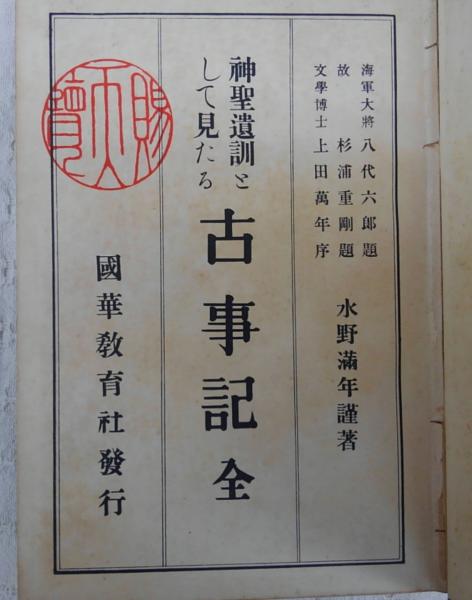 海軍大將 八代六郎題
故 杉浦重剛題
文學博士 上田萬年序
水野滿年謹著
神聖遺訓と
して見たる
古事記 全
國華敎育社發行
賜天覽